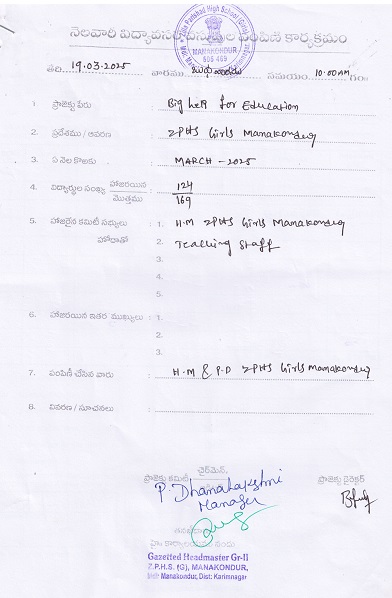 Zilla Parishad High School (Girls)
MANAKONDUR
505 469
నెలవారి విద్యావసర వస్తువుల పంపిణి కార్యక్రమం
తేది 19.03.2025 వారము బుధవారము సమయం 10:00AM గం
1. ప్రాజెక్టు పేరు : Big help for Education
2. ప్రదేశము / ఆవరణ : ZPHS Girls Manakondur
3. ఏ నెల కొఱకు : MARCH - 2025
4. విద్యార్థుల సంఖ్య హాజరయిన / మొత్తము : 124 / 169
5. హాజరైన కమిటీ సభ్యులు : 1. H.M ZPHS Girls Manakondur
హోదాతో 2. Teaching Staff
3.
4.
5.
6. హాజరయిన ఇతర ముఖ్యులు : 1.
2.
3.
7. పంపిణీ చేసిన వారు : H.M & P.D ZPHS Girls Manakondur
8. వివరణ / సూచనలు :
ఛైర్మెన్,
ప్రాజెక్టు కమిటీ ప్రాజెక్టు డైరెక్టర్
P. Dhanalakshmi
Manager
Gazetted Headmaster Gr-II
Z.P.H.S. (G), MANAKONDUR,
Manakondur, Dist: Karimnagar